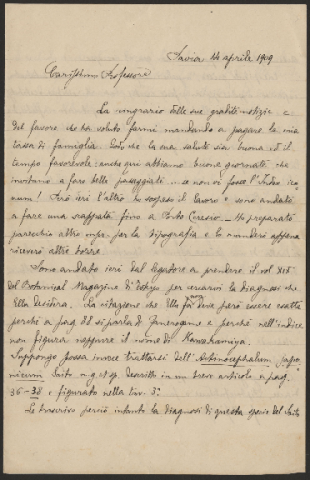 Pavia 14 aprile 1909
Carissimo Professore
La ringrazio delle sue gradite notizie e
del favore che ha voluto farmi mandando a pagare la mia
tassa di famiglia. Godo che la sua salute sia buona ed il
tempo favorevole: anche qui abbiamo buone giornate che
invitano a fare belle passeggiate ... se non vi fosse l'Index
Però ieri l'altro ho sospeso il lavoro e sono andato
a fare una scappata fino a Porto Ceresio. Ho preparato
parecchio altro mps. per la tipografia e lo manderò appena
riceverò altre bozze.
Sono andato ieri dal legadore a prendere il vol.
del Botanical Magazine di Tokyo per cercarvi la diagnosi che
Ella desidera. La citazione che Ella fa non deve però essere esatta
perchè a pag. 88 si parla di Fanerogame e perchè nell'indice
non figura neppure il nome di Kawakamiya.
Suppongo possa invece trattarsi dell'Actinocephalum japo-
nicum Saito n. g. et sp. descritto in un breve articolo a pag.
36-38 e figurato nella tav. 3ª.
Le trascrivo perciò intanto la diagnosi di questa specie del Saito